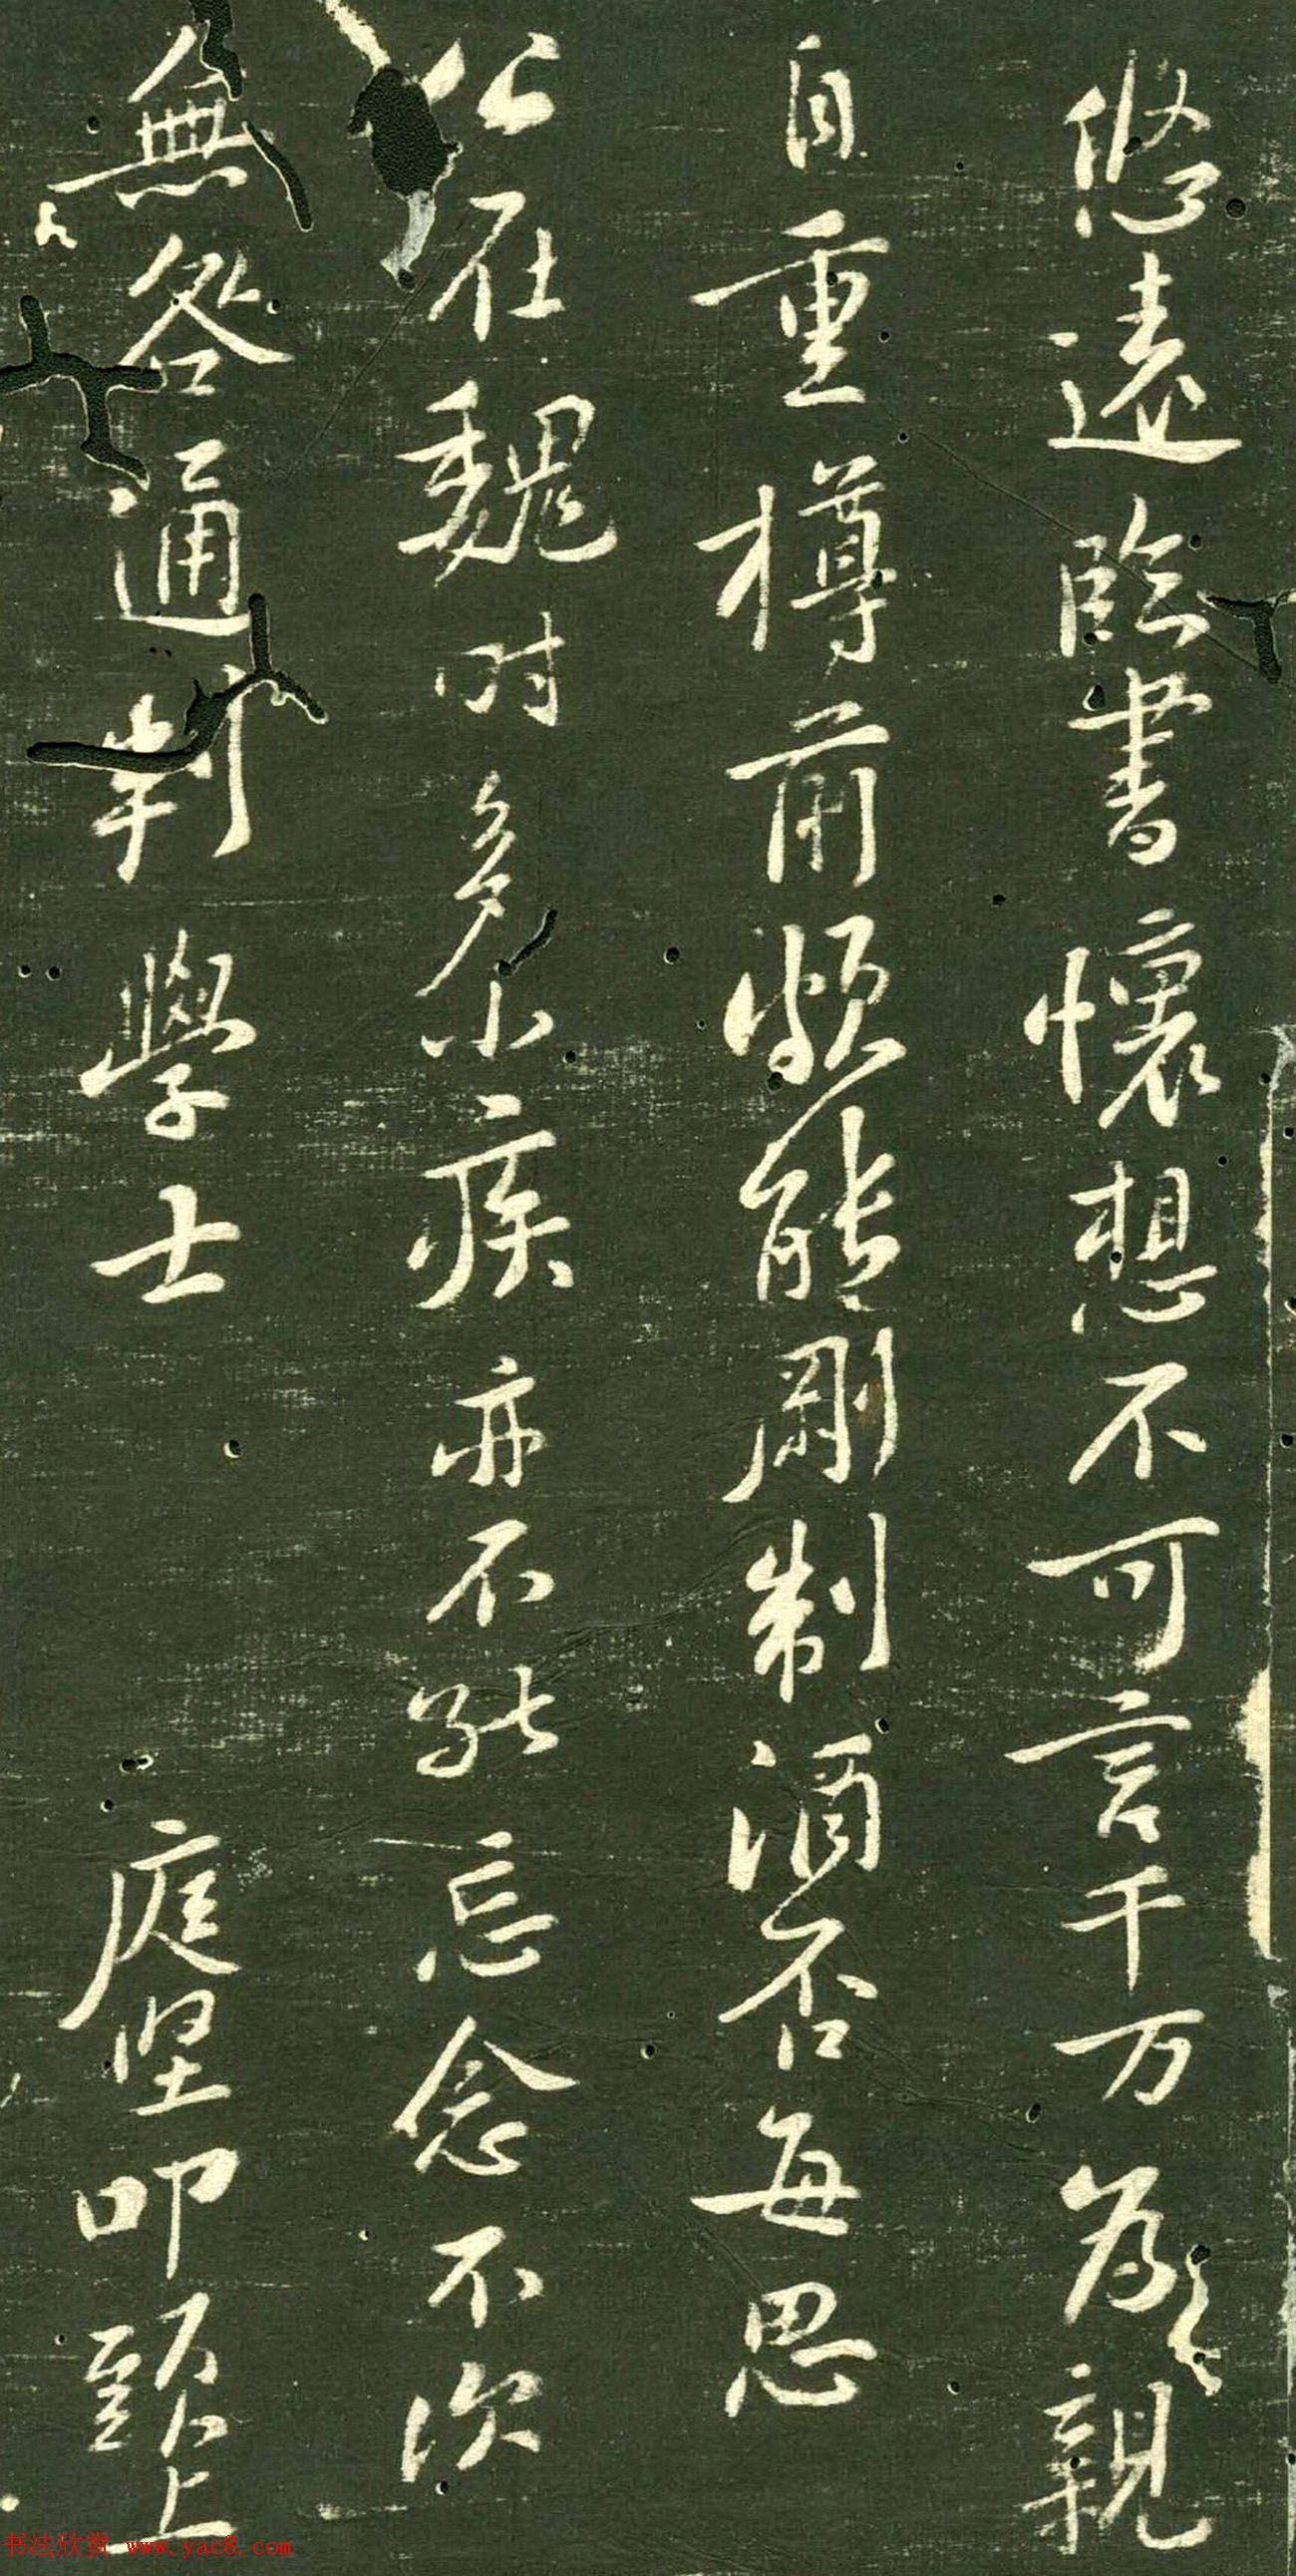 悠遠臨書懷想不可言千万為親
自重樽前頗能剛制酒否每思
公在魏時多小疾亦不能忘念不次
無咎通判學士 庭堅叩頭上
书法欣赏 www.yac8.com